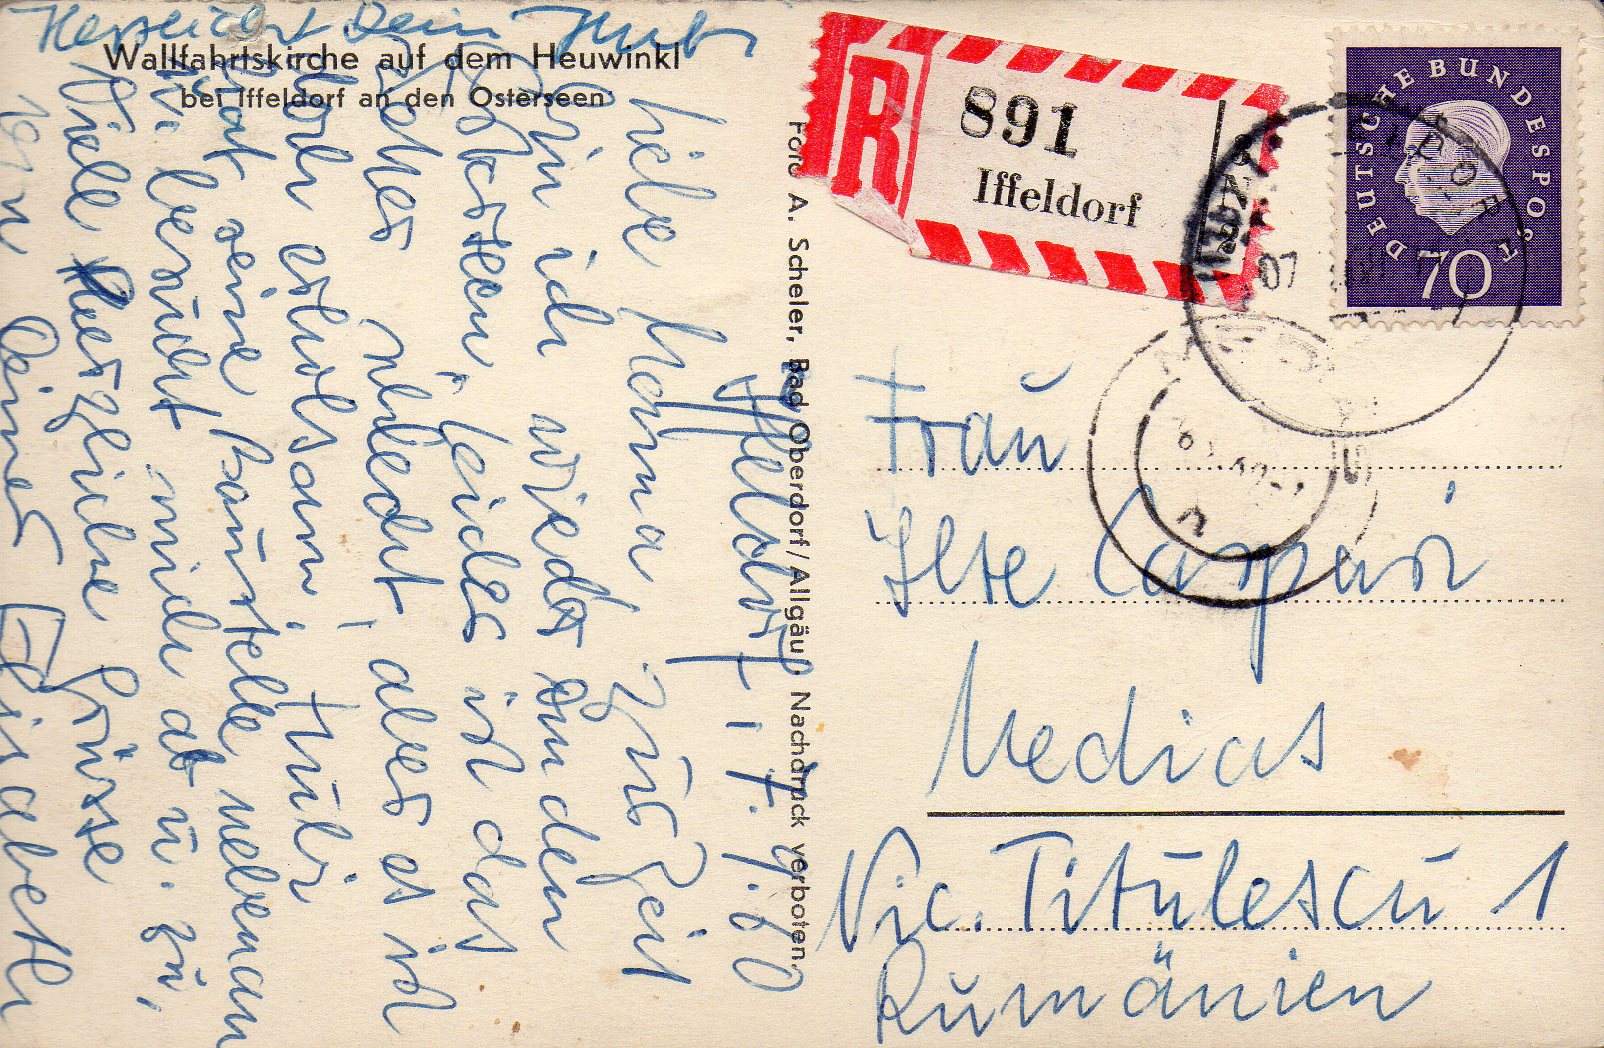 Wallfahrtskirche auf dem Heuwinkl
bei Iffeldorf an den Osterseen
Foto A. Scheler, Bad Oberdorf/Allgäu Nachdruck verboten.
R
891
Iffeldorf
DEUTSCHE BUNDESPOST
70
Iffeldorf, 7.9.60
Liebe Mama, zur Zeit
bin ich wieder an den
Osterseen, leider ist das
Wetter schlecht, aber es ist
erholsam. Hubi
hat seine Baustelle nebenan
u. besucht mich ab u. zu,
Viele herzliche Grüsse
von Deiner Elisabeth
Herzlichst Dein Hubi
Frau
Ilse Caspari
Medias
Nic. Titulescu 1
Rumänien